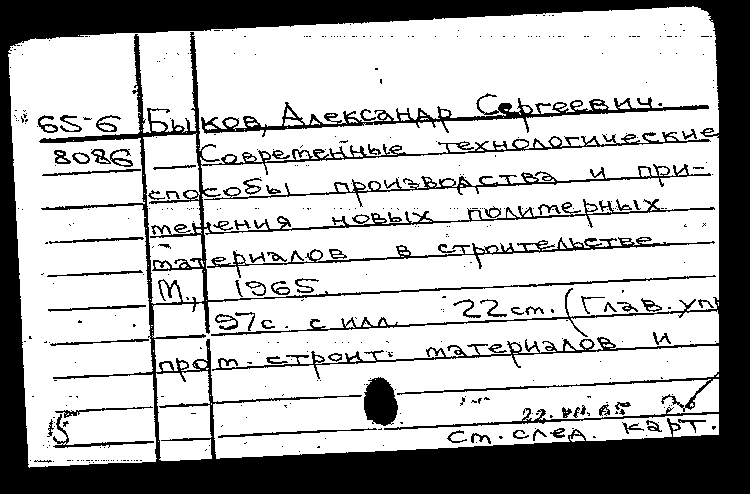 65-6 Быков, Александр Сергеевич.
8086 Современные технологические
способы производства и при-
менения новых полимерных
материалов в строительстве.
М., 1965.
97с. с илл. 22см. (Глав. упр
пром. строит. материалов и
22.VII.65
15
См. след. карт.